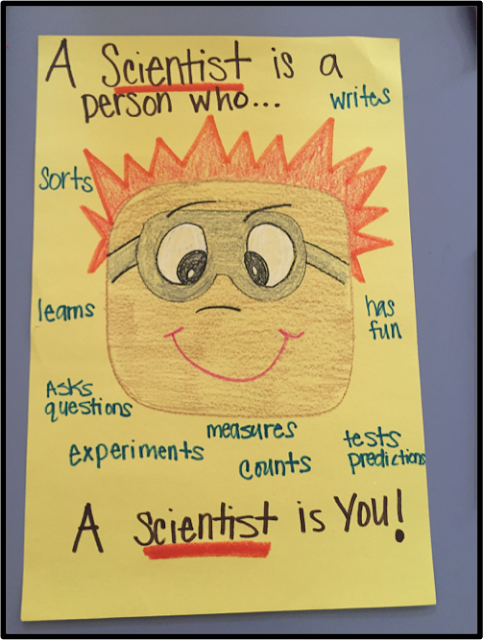 A Scientist is a
person who...
writes
sorts
learns
has
fun
Asks
questions
measures
experiments
counts
tests
predictions
A scientist is You!